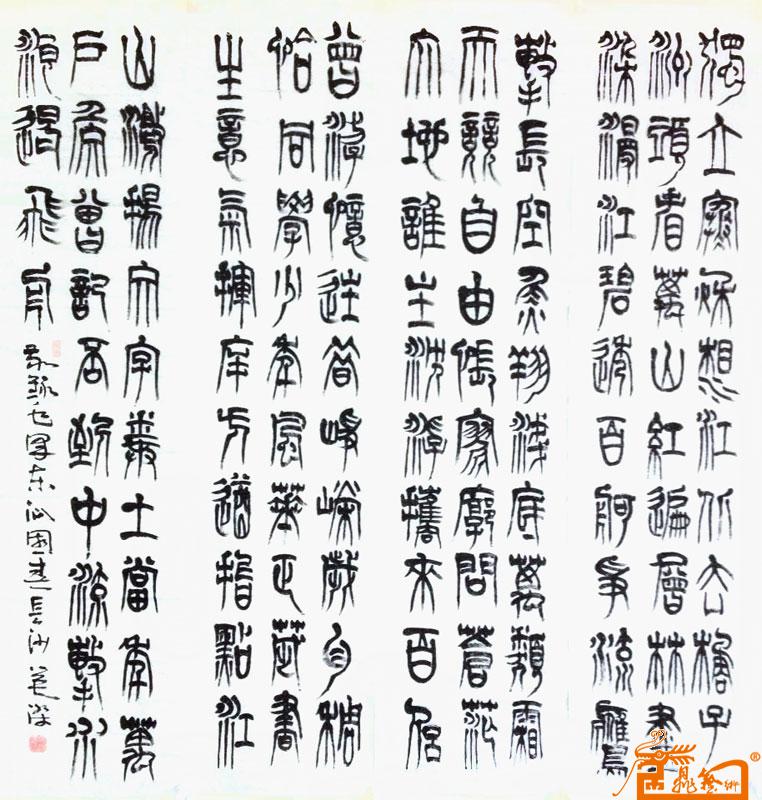 獨立寒秋湘江北去橘子
洲頭看萬山紅遍層林盡
染漫江碧透百舸爭流鷹
擊長空魚翔淺底萬類霜
天競自由悵寥廓問蒼茫
大地誰主沉浮攜來百侶
曾游憶往昔崢嶸歲月稠
恰同學少年風華正茂書
生意氣揮斥方遒指點江
山激揚文字糞土當年萬
戶侯曾記否到中流擊水
浪遏飛舟
録毛澤东沁園春長沙